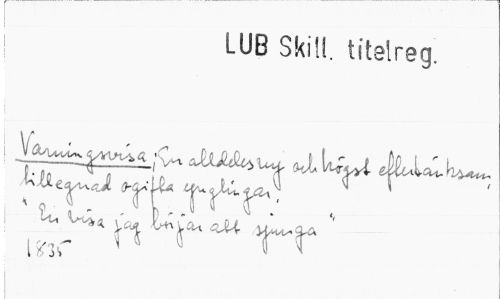 LUB Skill. titelreg.
Varningsvisa; En alldeles ny och högst eftertänksam,
tillegnad ogifta ynglingar.
"En visa jag börjar att sjunga"
1835